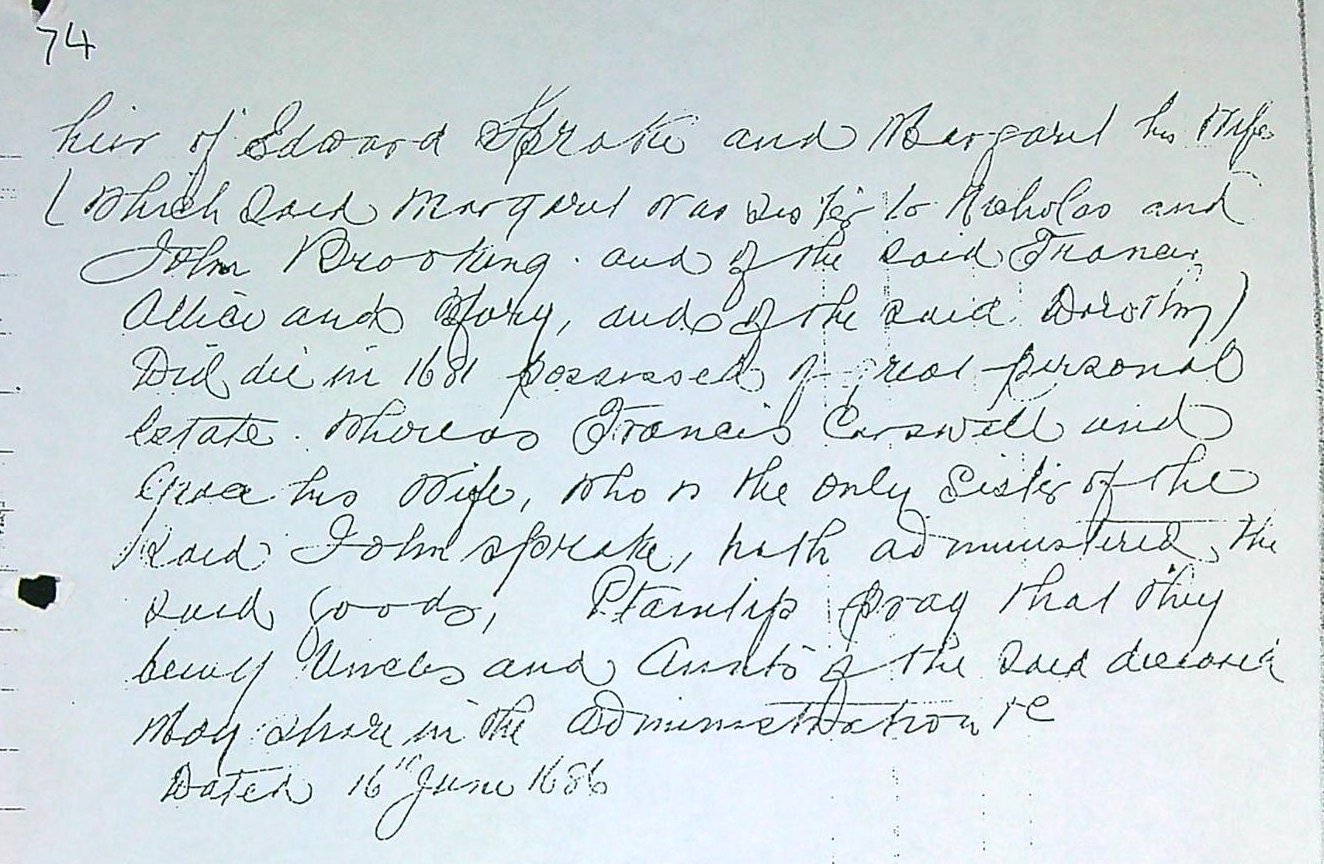 74
heir of Edward Sprake and Margaret his Wife
(which said Margaret was sister to Nicholas and
John Brooking. and of the said Frances,
Allice and Mary, and of the said Dorothy)
Did die in 1681 possessed of great personal
Estate. Whereas Francis Carswell and
Grace his Wife, who is the only Sister of the
said John Sprake, hath administered the
said goods, pray that they
being Uncles and Aunts of the said deceased
May share in the administration &c
Dated 16th June 1686